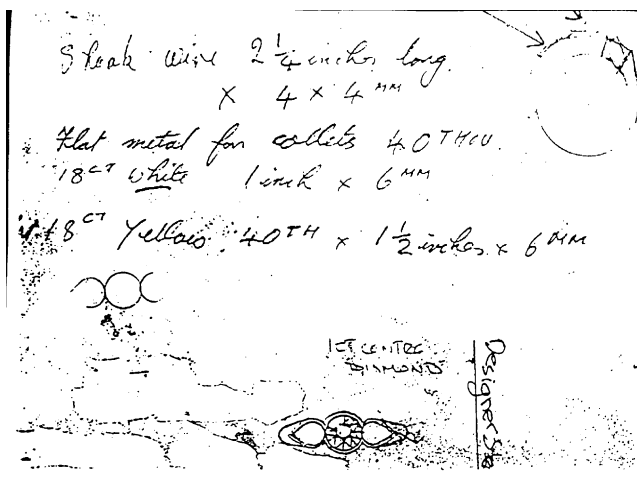 Shank wire 2 1/4 inches long.
x 4 x 4 MM
Flat metal for collets 40 THOU.
18 CT White 1 inch x 6 MM
18 CT Yellow. 40TH x 1 1/2 inches x 6 MM
1CT CENTRE
DIAMOND
Designer